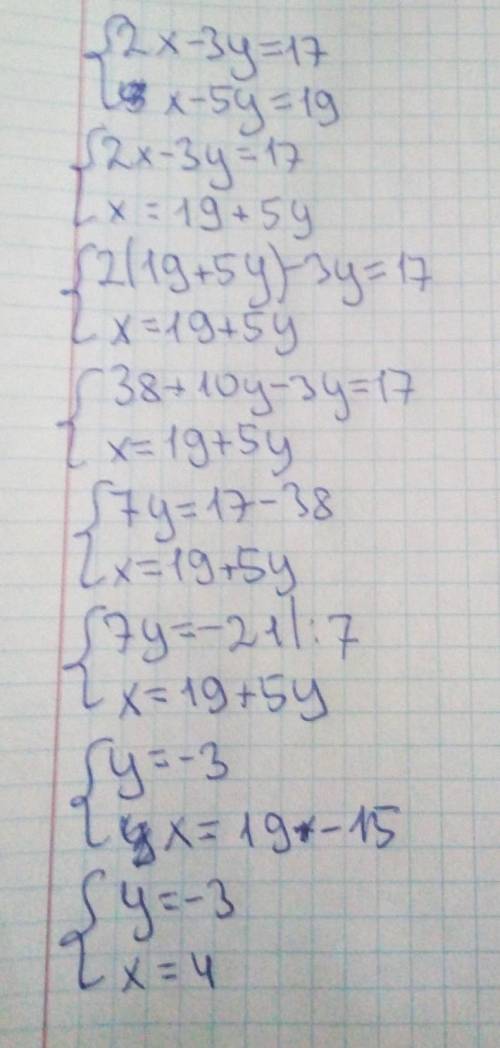 2x-3y=17
x-5y=19
2x-3y=17
x=19+5y
2(19+5y)-3y=17
x=19+5y
38+10y-3y=17
x=19+5y
7y=17-38
x=19+5y
7y=-21|:7
x=19+5y
y=-3
x=19-15
y=-3
x=4